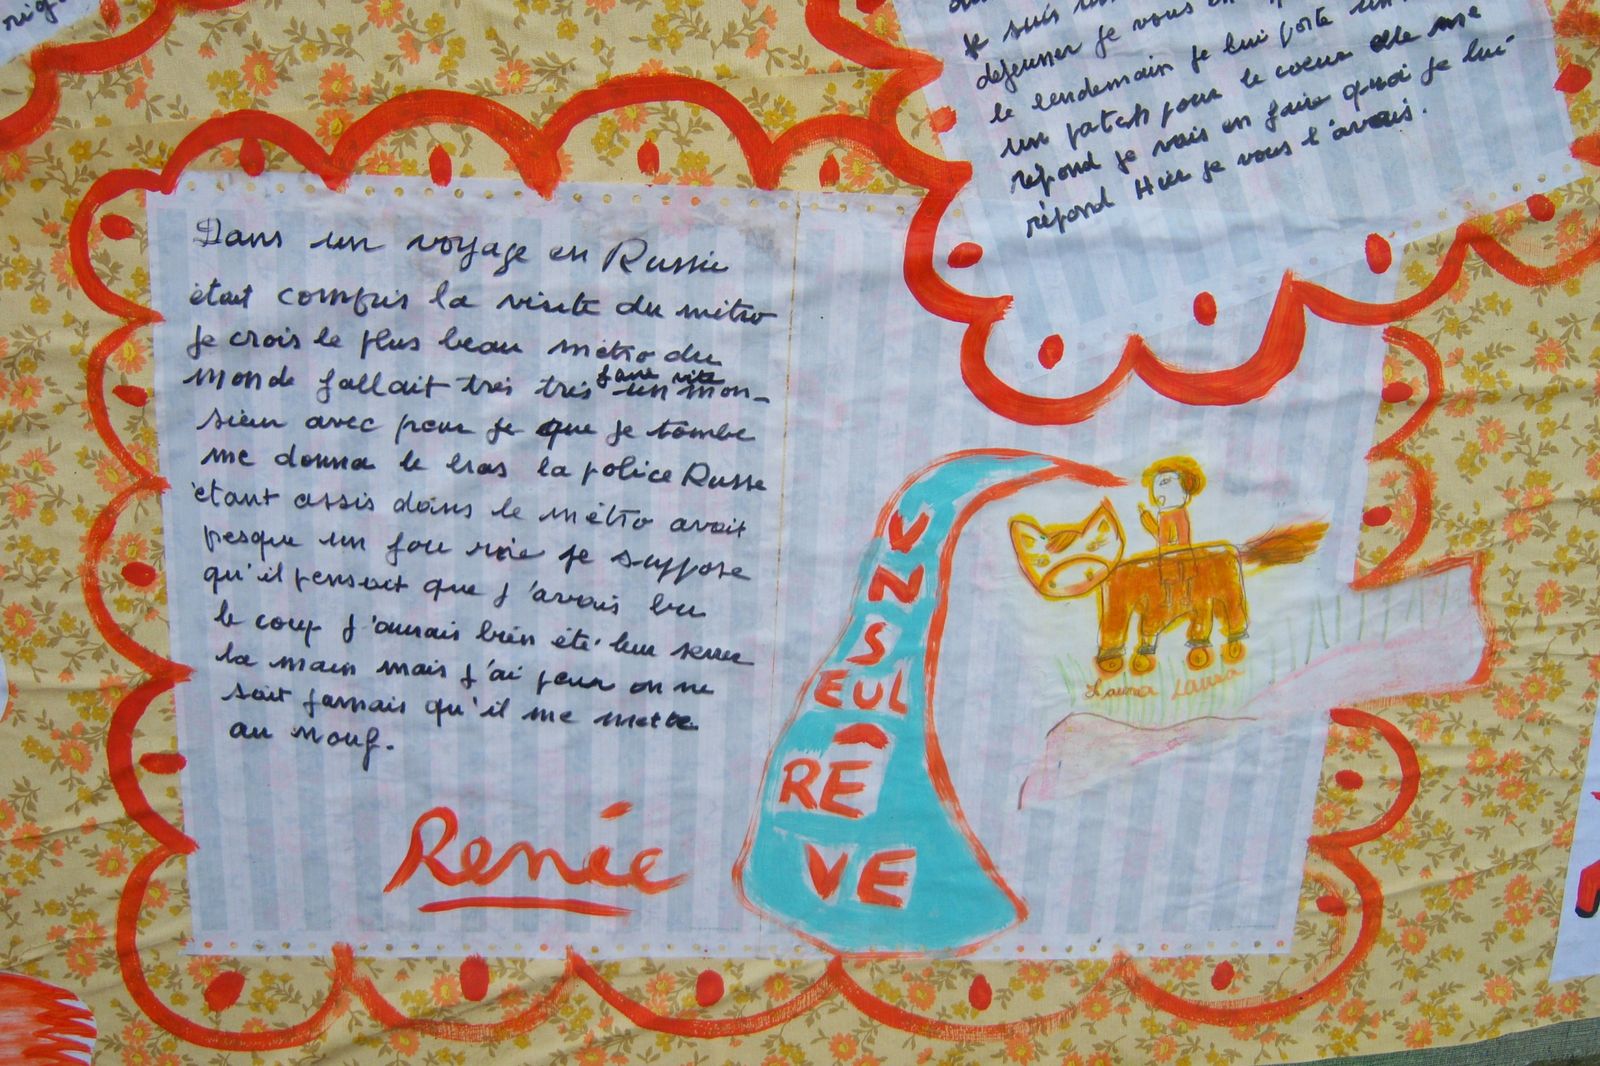 je suis
dejeuner je vous en
le lendemain je lui porte un
un patch pour le coeur elle me
répond je vais en faire quoi je lui
répond Hier je vous l'avais.
Dans un voyage en Russie
était compris la visite du métro
Je crois le plus beau métro du
monde fallait très très faire vite un mon-
sieur avec peur je que je tombe
me donna le bras la police Russe
étant assis dans le métro avait
pesque un fou rire je suppose
qu'il pensait que j'avais bu
le coup j'aurais bien été leur serrer
la main mais j'ai peur on ne
sait jamais qu'il me mette
au nouf.
Renée
UN
SEUL
RÊ
VE
Launa Launa